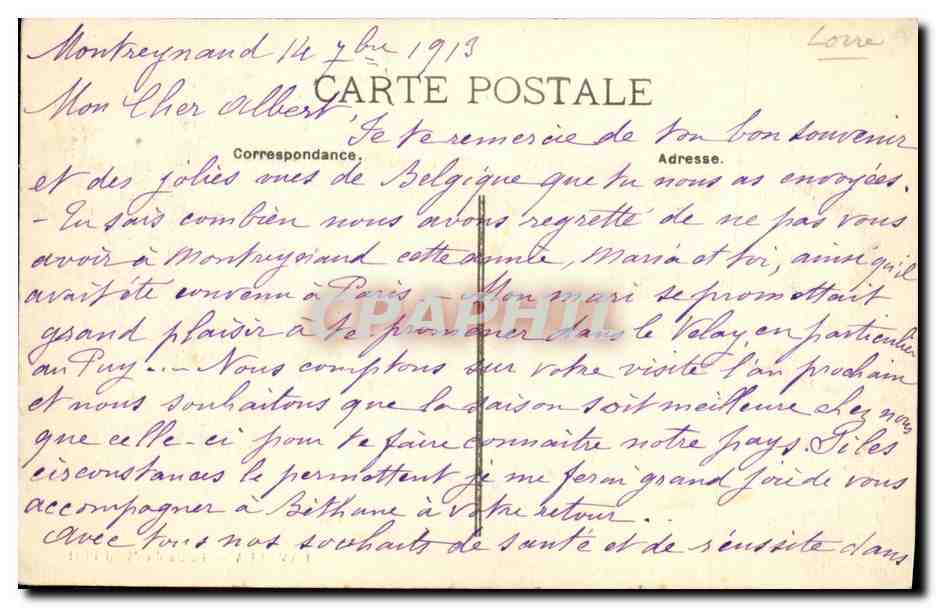 Montreynaud 14 7bre 1913
Loire
CARTE POSTALE
Mon Cher Albert,
Je te remercie de ton bon souvenir
Correspondance. Adresse.
et des jolies vues de Belgique que tu nous as envoyées.
- Tu sais combien nous avons regretté de ne pas vous
avoir à Montreynaud cette année, Maria et toi, ainsi qu'il
avait été convenu à Paris - Mon mari se promettait
CPAPHIL
grand plaisir à te promener dans le Velay, en particulier
au Puy... Nous comptons sur votre visite l'an prochain
et nous souhaitons que la saison soit meilleure chez nous
que celle-ci pour te faire connaître notre pays. Si les
circonstances le permettent je me ferai grand joie de vous
accompagner à Béthune à votre retour...
Avec tous nos souhaits de santé et de réussite dans